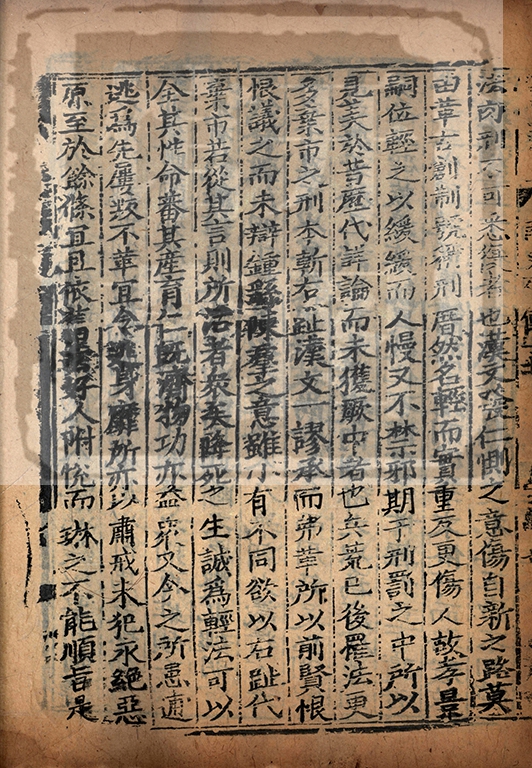 法刻則不可悉者也漢文發仁惻之意傷自新之路莫
由革古創制號稱刑厝然名輕而實重反更傷人故孝景
嗣位輕之以緩緩而人慢又不禁邪期于刑罰之中所以
見美於昔歷代詳論而未獲厥中者也兵荒已後罹法更
多棄市之刑本斬右趾漢文一謬承而弗革所以前賢恨
恨議之而未辯鍾繇陳羣之意雖小有不同欲以右趾代
棄市若從其言則所活者衆矣降死之生誠爲輕法可以
全其性命蕃其產育仁既濟物功亦益衆又今之所患逋
逃爲先屢叛不革宜令逃身靡所亦以肅戒未犯永絕惡
原至於餘條宜且依舊玄好人附悅而琳之不能順旨是